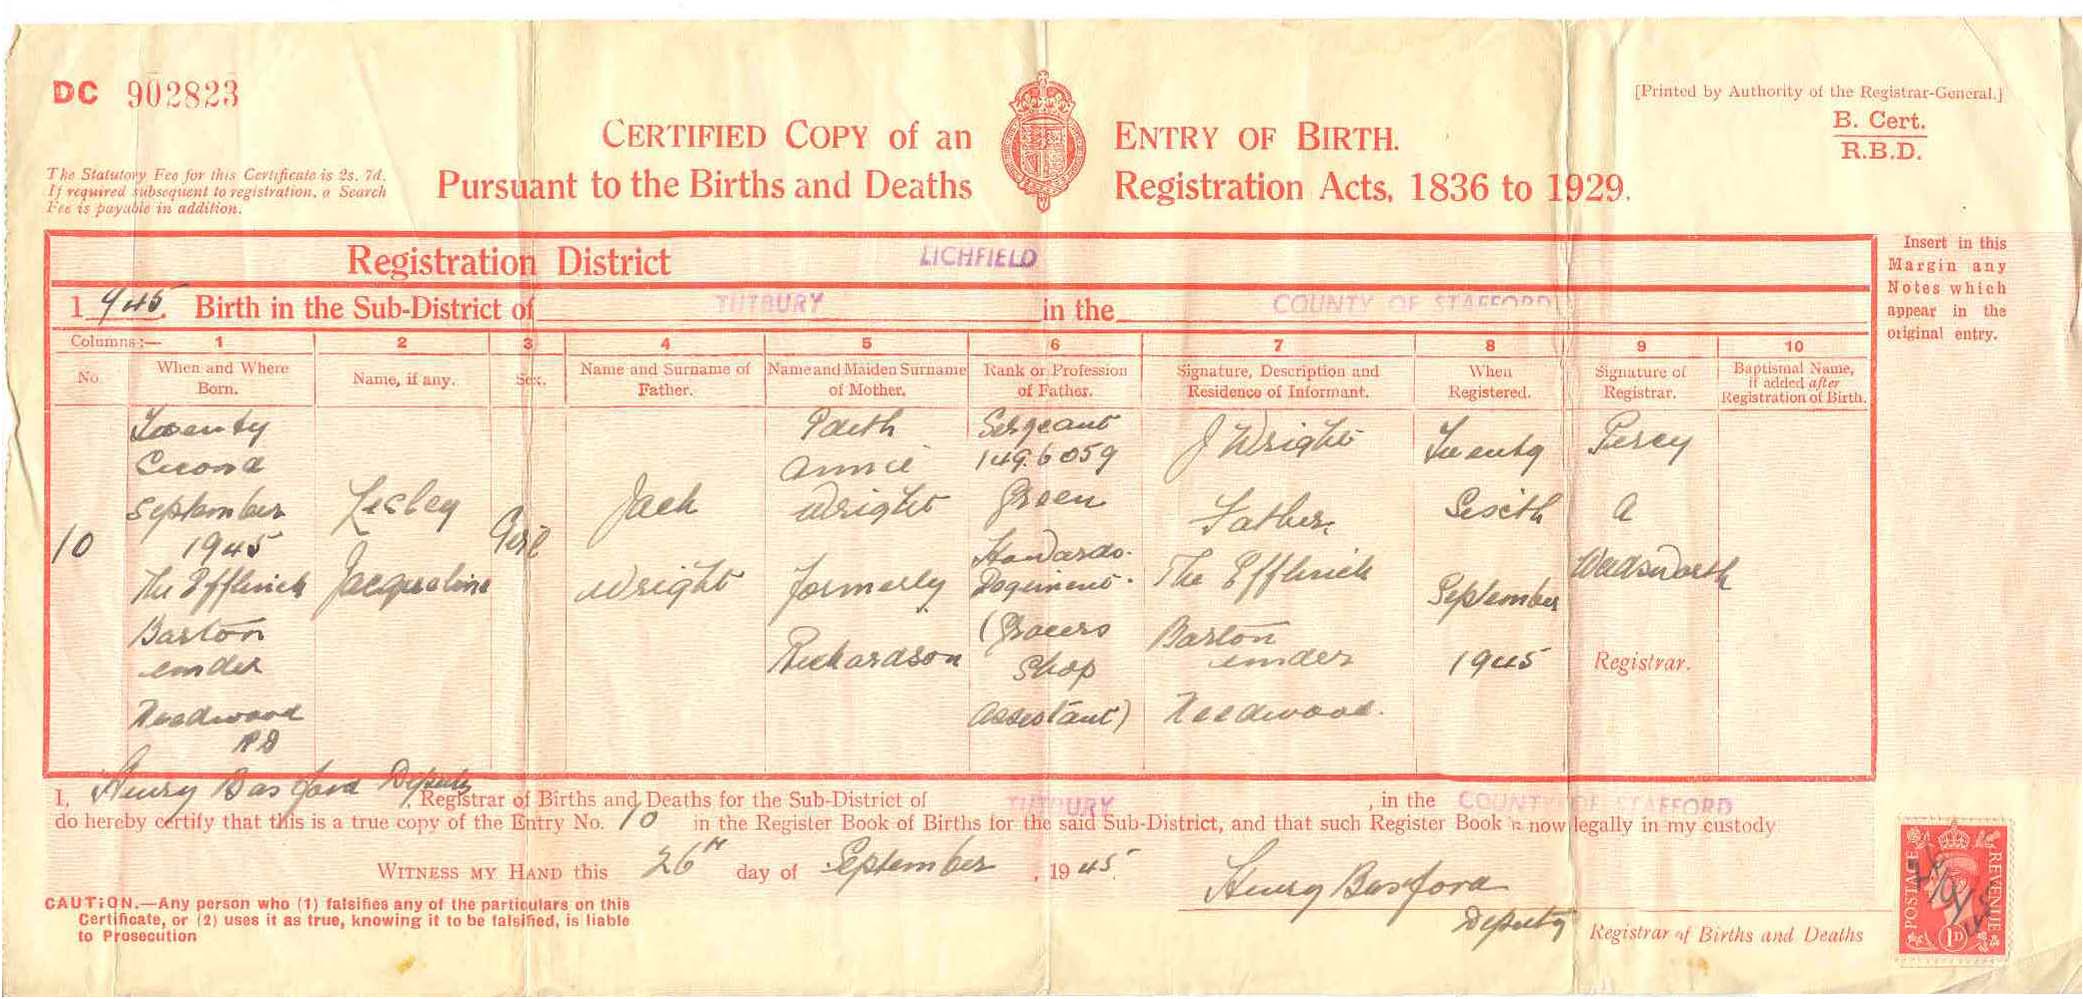 DC 902823
[Printed by Authority of the Registrar-General.]
B. Cert.
R.B.D.
CERTIFIED COPY of an ENTRY OF BIRTH.
Pursuant to the Births and Deaths Registration Acts, 1836 to 1929.
The Statutory Fee for this Certificate is 2s. 7d.
If required subsequent to registration, a Search
Fee is payable in addition.
Registration District LICHFIELD
1945. Birth in the Sub-District of TUTBURY in the COUNTY OF STAFFORD
Insert in this
Margin any
Notes which
appear in the
original entry.
Columns:— 1 2 3 4 5 6 7 8 9 10
No.
When and Where
Born.
Name, if any.
Sex.
Name and Surname of
Father.
Name and Maiden Surname
of Mother.
Rank or Profession
of Father.
Signature, Description and
Residence of Informant.
When
Registered.
Signature of
Registrar.
Baptismal Name,
if added after
Registration of Birth.
10
Twenty
Second
September
1945
The Efflinch
Barton
under
Needwood
RD
Lesley
Jacqueline
Girl
Jack
Wright
Annie
Wright
formerly
Richardson
Sergeant
Green
Howards
Regiment
(Grocers
Shop
Assistant)
J Wright
Father
The Efflinch
Barton
under
Needwood.
Twenty
Sixth
September
1945
Percy
A
Wadsworth
Registrar.
I, Henry Basford Deputy Registrar of Births and Deaths for the Sub-District of TUTBURY, in the COUNTY OF STAFFORD
do hereby certify that this is a true copy of the Entry No. 10 in the Register Book of Births for the said Sub-District, and that such Register Book is now legally in my custody
WITNESS MY HAND this 26th day of September, 1945.
Henry Basford
Deputy Registrar of Births and Deaths
CAUTION.—Any person who (1) falsifies any of the particulars on this
Certificate, or (2) uses it as true, knowing it to be falsified, is liable
to Prosecution
POSTAGE
REVENUE
1D